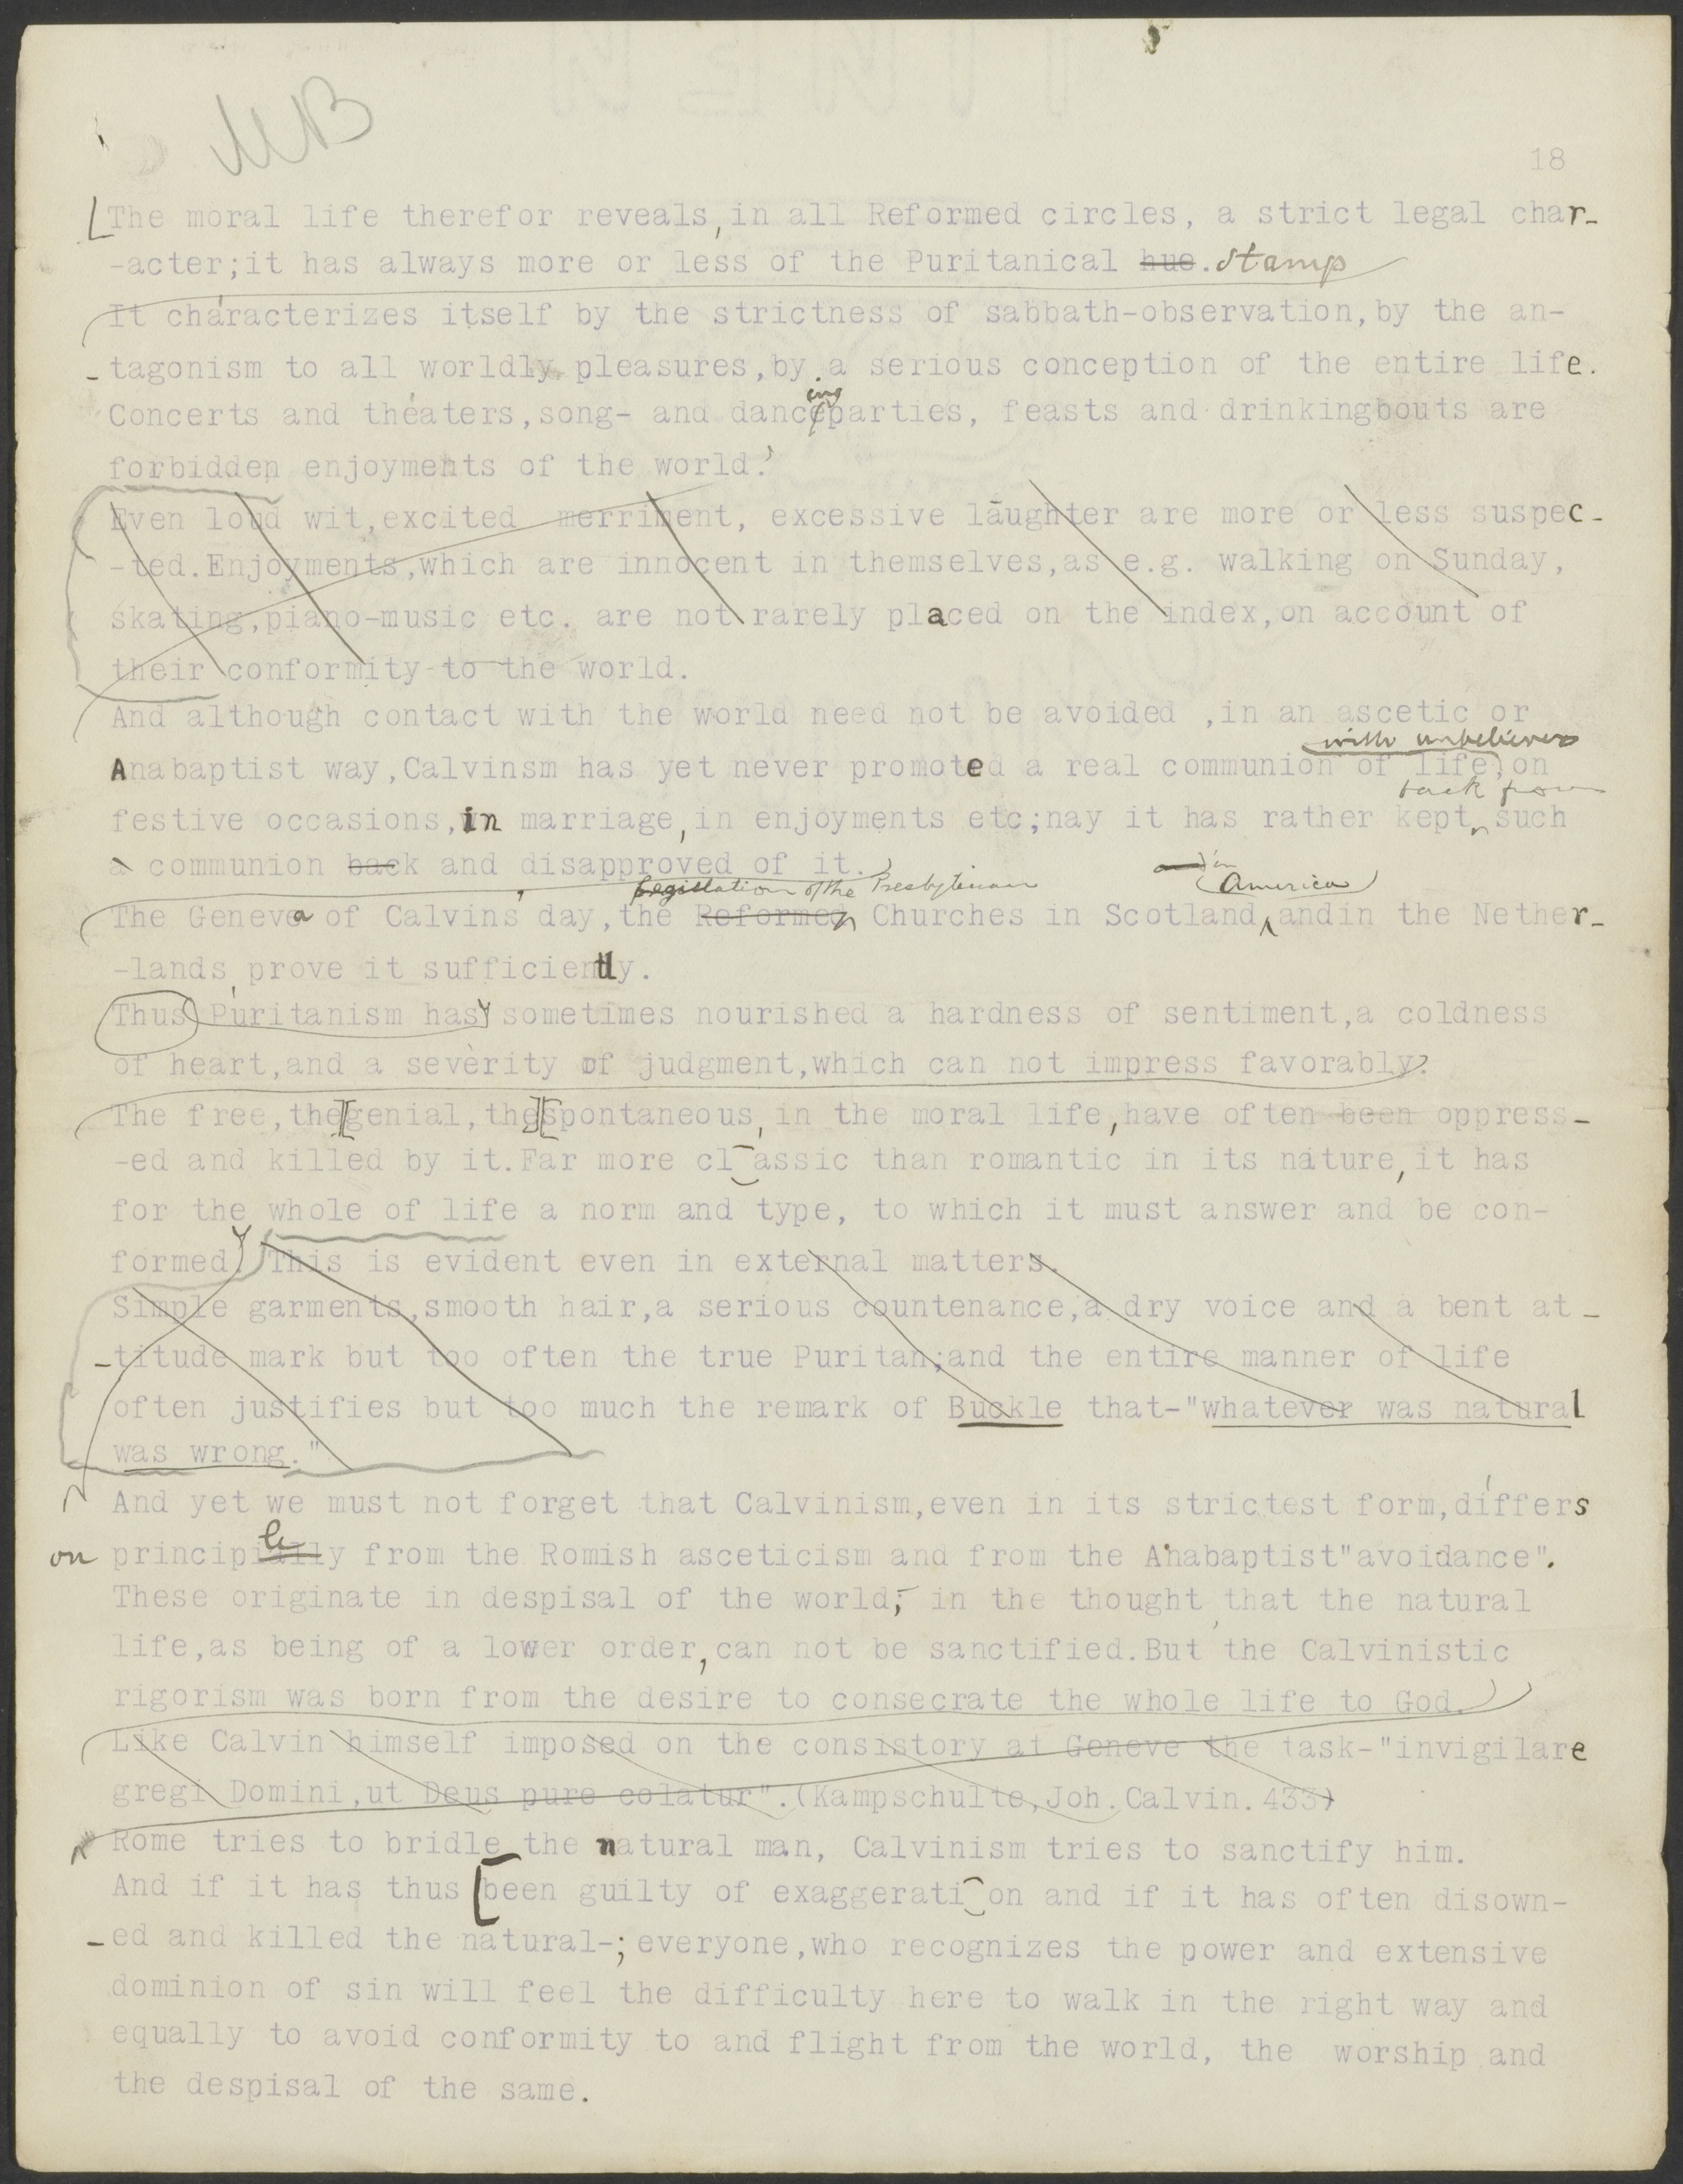 MB
18
The moral life therefor reveals, in all Reformed circles, a strict legal char-
-acter;it has always more or less of the Puritanical hue. stamp
It characterizes itself by the strictness of sabbath-observation,by the an-
-tagonism to all worldly pleasures,by a serious conception of the entire life.
ing
Concerts and theaters,song- and danceparties, feasts and drinkingbouts are
forbidden enjoyments of the world.
Even loud wit,excited merriment, excessive laughter are more or less suspec-
-ted.Enjoyments,which are innocent in themselves,as e.g. walking on Sunday,
skating,piano-music etc. are not rarely placed on the index,on account of
their conformity to the world.
And although contact with the world need not be avoided ,in an ascetic or
with unbelievers
Anabaptist way,Calvinsm has yet never promoted a real communion of life,on
back from
festive occasions,in marriage,in enjoyments etc;nay it has rather kept such
a communion back and disapproved of it.
legislation of the Presbyterian in America
The Geneva of Calvins' day,the Reformed Churches in Scotland andin the Nether-
-lands prove it sufficiently.
Thus Puritanism has sometimes nourished a hardness of sentiment,a coldness
of heart,and a severity of judgment,which can not impress favorably.
The free,the genial,the spontaneous, in the moral life,have often been oppress-
-ed and killed by it.Far more classic than romantic in its nature,it has
for the whole of life a norm and type, to which it must answer and be con-
formed. This is evident even in external matters.
Simple garments,smooth hair,a serious countenance,a dry voice and a bent at-
-titude mark but too often the true Puritan;and the entire manner of life
often justifies but too much the remark of Buckle that-"whatever was natural
was wrong."
And yet we must not forget that Calvinism,even in its strictest form,differs
le
on principially from the Romish asceticism and from the Anabaptist"avoidance".
These originate in despisal of the world; in the thought that the natural
life,as being of a lower order,can not be sanctified.But the Calvinistic
rigorism was born from the desire to consecrate the whole life to God.
Like Calvin himself imposed on the consistory at Geneve the task-"invigilare
gregi Domini,ut Deus pure colatur".(Kampschulte,Joh.Calvin.433)
Rome tries to bridle the natural man, Calvinism tries to sanctify him.
And if it has thus been guilty of exaggeration and if it has often disown-
-ed and killed the natural-;everyone,who recognizes the power and extensive
dominion of sin will feel the difficulty here to walk in the right way and
equally to avoid conformity to and flight from the world, the worship and
the despisal of the same.